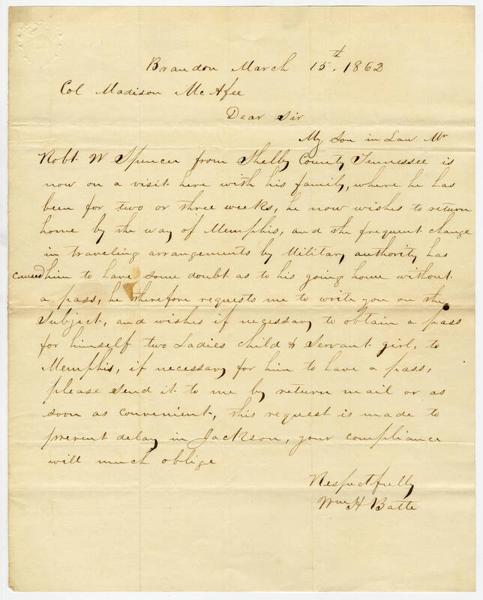 Brandon March 15th. 1862
Col Madison McAfee
Dear Sir
My Son in Law Mr
Robt W Spencer from Shelby County Tennessee is
now on a visit here with his family, where he has
been for two or three weeks, he now wishes to return
home by the way of Memphis, and the frequent change
in traveling arrangements by Military authority has
caused him to have some doubt as to his going home without
a pass, he therefore requests me to write you on the
Subject, and wishes if necessary to obtain a pass
for himself two Ladies child & Servant girl, to
Memphis, if necessary for him to have a pass,
please send it to me by return mail or as
soon as convenient, this request is made to
prevent delay in Jackson, your compliance
will much oblige
Respectfully
Wm H Batte